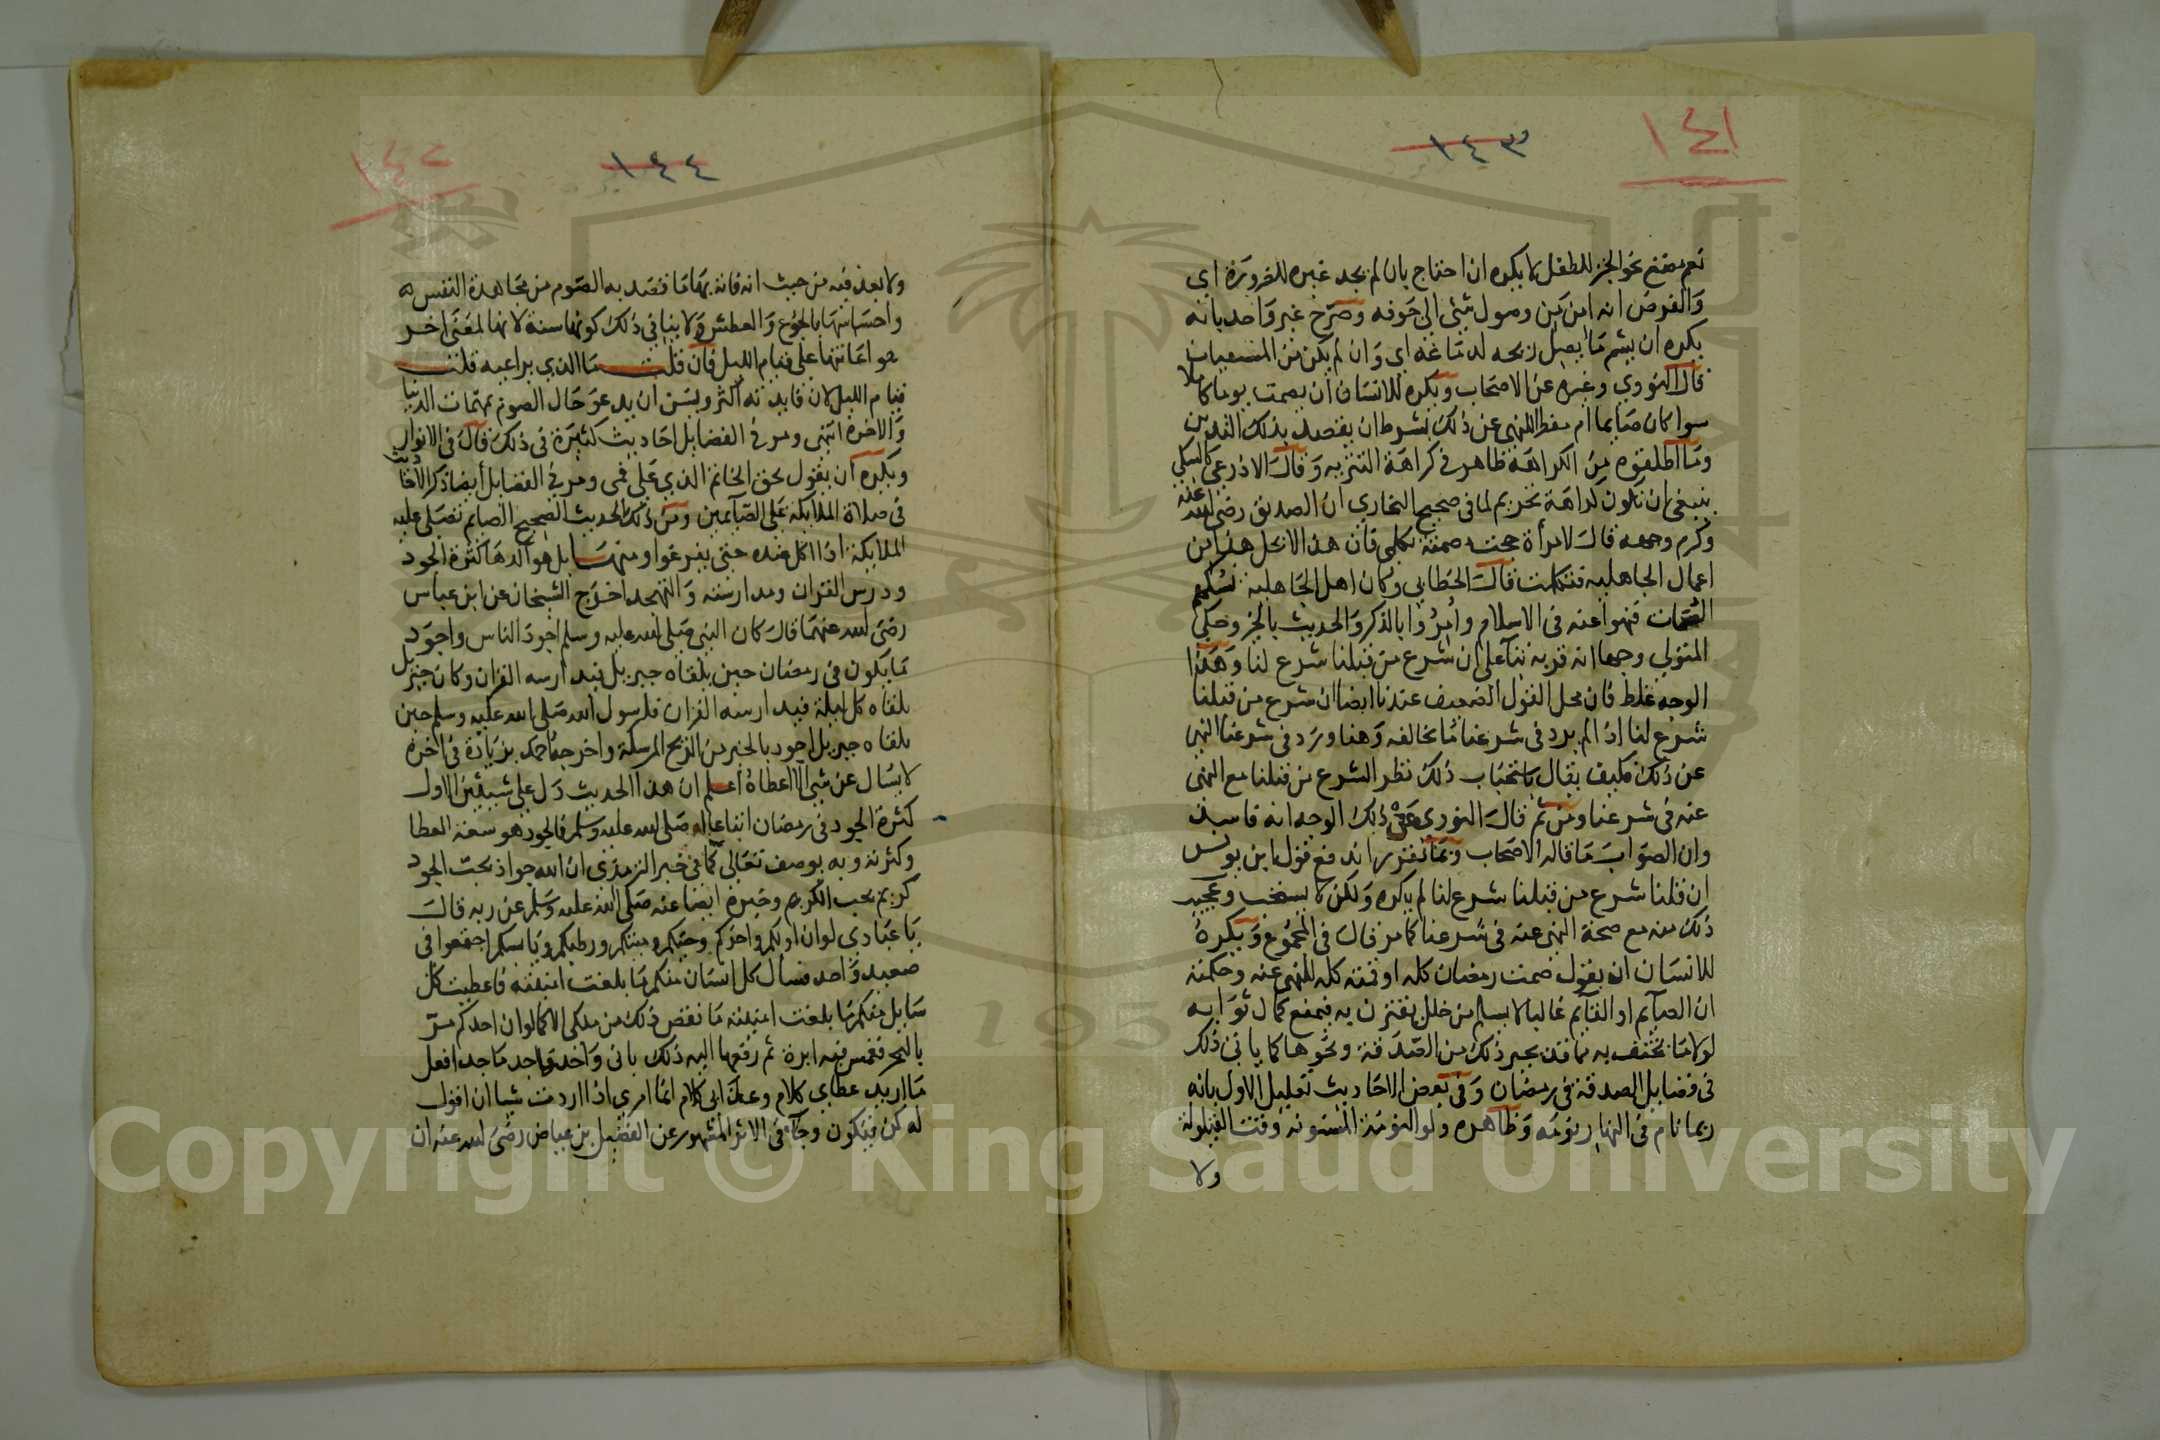 ١٤١
١٤٣
نعم مضغ نحو الخبز للطفل لا يكره ان احتاج بان لم يجد غيره للضرورة اى
والفرض انه امن من وصول شئ الى جوفه وصرح غير واحد بانه
يكره ان يشم ما يصل ريحه لدماغه اى وان لم يكن من
قال النووي وغيره عن الاصحاب ويكره للانسان ان يصمت يوما كاملا
سوا كان صايما ام مفطرا للنهى عن ذلك بشرط ان يقصد بذلك التدين
وما اطلقوه من الكراهة ظاهر فى كراهة التنزيه وقال الاذرعى كالسبكي
ينبغى ان تكون كراهة تحريم لما فى صحيح البخاري ان الصديق رضى الله عنه
وكرم وجهه قال لامرأة حجت مصمتة تكلمى فان هذا لا يحل هذا من
اعمال الجاهلية فتكلمت قال الخطابي وكان اهل الجاهلية نسكهم
الصمات فنهوا عنه فى الاسلام وامروا بالذكر والحديث بالخير وحكى
المتولي وجها انه قربة بناء على ان شرع من قبلنا شرع لنا وهذا
الوجه غلط فان محل القول الضعيف عندنا ايضا ان شرع من قبلنا
شرع لنا اذا لم يرد فى شرعنا ما يخالفه وهنا ورد فى شرعنا النهى
عن ذلك فكيف يقال باستحباب ذلك نظر الشرع من قبلنا مع النهى
عنه فى شرعنا ومن ثم قال النووى عن ذلك الوجه انه فاسد
وان الصواب ما قاله الاصحاب وبما تقرر اندفع قول ابن يونس
ان قلنا شرع من قبلنا شرع لنا لم يكره ولكن لا يستحب وعجيب
ذلك منه مع صحة النهى عنه فى شرعنا كما مر قال فى المجموع ويكره
للانسان ان يقول صمت رمضان كله او قمته كله للنهى عنه وحكمته
ان الصآيم او القآيم غالبا لا يسلم من خلل يقترن به فيمنع كمال ثوابه
لولا ما يخفف به مما قد يجبر ذلك من الصدقة ونحوها كما ياتى ذلك
فى فضايل الصدقة فى رمضان وفى بعض الاحاديث تعليل الاول بانه
ربما نام فى النهار نومه وظاهره ولو النومة المسنونة وقت القيلولة
ولا
١٤٤
١٤٢
ولا بعد فيه من حيث انه فاته بها ما قصد به الصوم من مجاهدة النفس
واحسانها بالجوع والعطش ولا ينافى ذلك كونها سنة لانها لمعنى اخر
هو اعانتها على قيام الليل فان قلت ما الذي يراعيه قلت
قيام الليل لان فايدته اكثر ويسن ان يدعو حال الصوم بمهمات الدنيا
والاخرة انتهى ومر فى الفضايل احاديث كثيرة فى ذلك قال فى الانوار
ويكره ان يقول بحق الخاتم الذي على فمى ومر فى الفضايل أيضا ذكر
فى صلاة الملايكة على الصآيمين ومن ذلك الحديث الصحيح الصايم تصلى عليه
الملايكة اذا اكل عنده حتى يفرغوا ومنها بل هو آكدها كثرة الجود
ودرس القران ومدارسته والتهجد اخرج الشيخان عن ابن عباس
رضى الله عنهما قال كان النبى صلى الله عليه وسلم اجود الناس واجود
ما يكون فى رمضان حين يلقاه جبريل فيدارسه القران وكان جبريل
يلقاه كل ليلة فيدارسه القران فلرسول الله صلى الله عليه وسلم حين
يلقاه جبريل اجود بالخير من الريح المرسلة واخرجه احمد بزيادة فى اخره
لا يسال عن شئ الا اعطاه اعلم ان هذا الحديث دل على شيئين الاول
كثرة الجود فى رمضان اتباعا له صلى الله عليه وسلم فالجود هو سعة العطا
وكثرته وبه يوصف تعالى كما فى خبر الترمذى ان الله جواد يحب الجود
كريم يحب الكرم وخبره ايضا عنه صلى الله عليه وسلم عن ربه قال
يا عبادى لو ان اولكم واخركم وحيكم وميتكم ورطبكم ويابسكم اجتمعوا فى
صعيد واحد فسأل كل انسان منكم ما بلغت امنيته فاعطيت كل
سايل منكم ما بلغت امنيته ما نقص ذلك من ملكى الا كما لو ان احدكم مر
بالبحر فغمس فيه ابرة ثم رفعها اليه ذلك بانى واجد ماجد افعل
ما اريد عطاى كلام وعذابى كلام انما امرى اذا اردت شيا ان اقول
له كن فيكون وجآء فى الاثر المشهور عن الفضيل بن عياض رضى الله عنه ان
Copyright © King Saud University
195